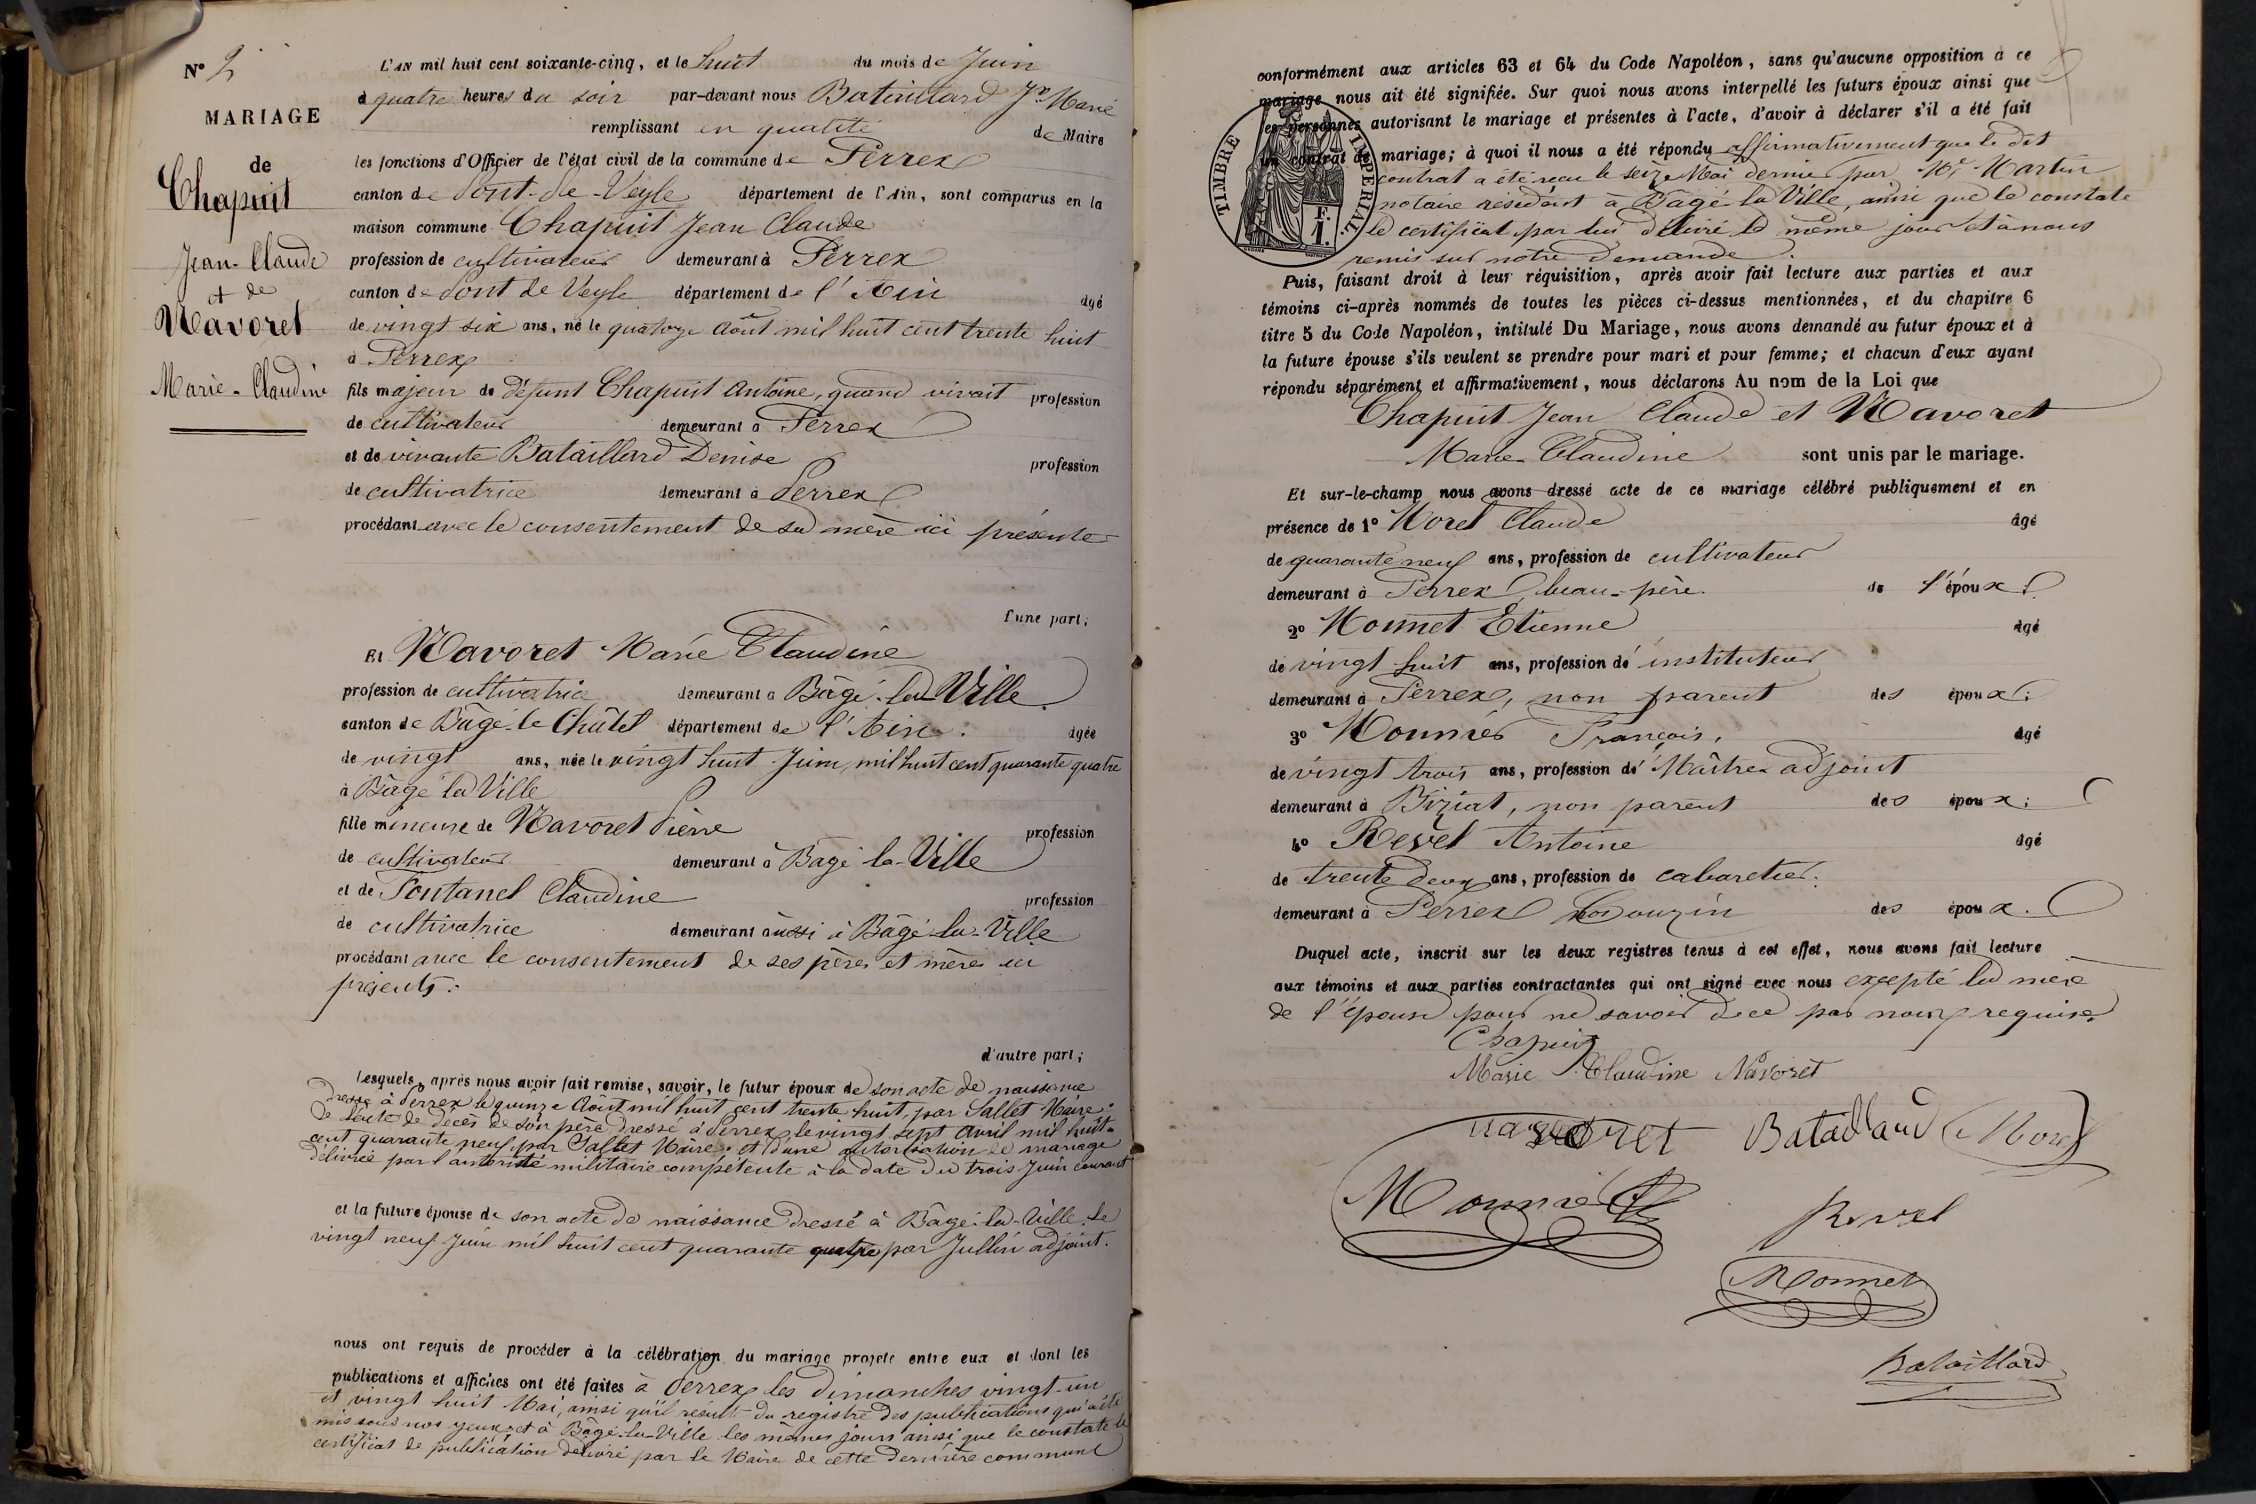 N° 2
MARIAGE
de
Chapuit
Jean-Claude
et de
Navoret
Marie-Claudine
L'AN mil huit cent soixante-cinq, et le huit du mois de Juin
à quatre heures du soir par-devant nous Bataillard Jh Marie
remplissant en qualité de Maire
les fonctions d'Officier de l'état civil de la commune de Perrex
canton de Pont-de-Veyle département de l'Ain, sont comparus en la
maison commune Chapuit Jean Claude
profession de cultivateur demeurant à Perrex
canton de Pont de Veyle département de l'Ain âgé
de vingt six ans, né le quatorze Août mil huit cent trente huit
à Perrex
fils majeur de défunt Chapuit Antoine, quand vivait profession
de cultivateur demeurant à Perrex
et de vivante Bataillard Denise profession
de cultivatrice demeurant à Perrex
procédant avec le consentement de sa mère ici présente
d'une part;
Et Navoret Marie Claudine
profession de cultivatrice demeurant à Bâgé-la-Ville
canton de Bâgé-le-Châtel département de l'Ain. âgée
de vingt ans, née le vingt huit Juin mil huit cent quarante quatre
à Bâgé la Ville
fille mineure de Navoret Pierre profession
de cultivateur demeurant à Bâgé-la-Ville
et de Fontanel Claudine profession
de cultivatrice demeurant aussi à Bâgé-la-Ville
procédant avec le consentement de ses pères et mères ici
présents.
d'autre part;
Lesquels, après nous avoir fait remise, savoir, le futur époux de son acte de naissance
dressé à Perrex le quinze Août mil huit cent trente huit, par Sallet Maire;
de l'acte de décès de son père dressé à Perrex, le vingt sept Avril mil huit
cent quarante neuf, par Sallet Maire; et d'une autorisation de mariage
délivrée par l'autorité militaire compétente à la date du trois Juin courant
et la future épouse de son acte de naissance dressé à Bâgé-la-Ville, le
vingt neuf Juin mil huit cent quarante quatre par Jullin adjoint.
nous ont requis de procéder à la célébration du mariage projeté entre eux et dont les
publications et affiches ont été faites à Perrex les dimanches vingt-un
et vingt huit Mai, ainsi qu'il résulte du registre des publications qui a été
mis sous nos yeux, et à Bâgé-la-Ville les mêmes jours ainsi que le constate le
certificat de publication délivré par le Maire de cette dernière commune
conformément aux articles 63 et 64 du Code Napoléon, sans qu'aucune opposition à ce
mariage nous ait été signifiée. Sur quoi nous avons interpellé les futurs époux ainsi que
les personnes autorisant le mariage et présentes à l'acte, d'avoir à déclarer s'il a été fait
un contrat de mariage; à quoi il nous a été répondu affirmativement que le dit
contrat a été reçu le seize Mai dernier par Me Martin
notaire résidant à Bâgé la Ville, ainsi que le constate
le certificat par lui délivré le même jour et à nous
remis sur notre demande.
TIMBRE IMPERIAL.
F.
1.
Puis, faisant droit à leur réquisition, après avoir fait lecture aux parties et aux
témoins ci-après nommés de toutes les pièces ci-dessus mentionnées, et du chapitre 6
titre 5 du Code Napoléon, intitulé Du Mariage, nous avons demandé au futur époux et à
la future épouse s'ils veulent se prendre pour mari et pour femme; et chacun d'eux ayant
répondu séparément et affirmativement, nous déclarons Au nom de la Loi que
Chapuit Jean Claude et Navoret
Marie-Claudine sont unis par le mariage.
Et sur-le-champ nous avons dressé acte de ce mariage célébré publiquement et en
présence de 1° Morel Claude âgé
de quarante neuf ans, profession de cultivateur
demeurant à Perrex, beau-père de l'époux;
2° Monnet Etienne âgé
de vingt huit ans, profession d'instituteur
demeurant à Perrex, non parent des époux;
3° Mounier François, âgé
de vingt trois ans, profession de Maître adjoint
demeurant à Biziat, non parent des époux;
4° Revel Antoine âgé
de trente deux ans, profession de cabaretier.
demeurant à Perrex cousin des époux.
Duquel acte, inscrit sur les deux registres tenus à cet effet, nous avons fait lecture
aux témoins et aux parties contractantes qui ont signé avec nous excepté la mère
de l'épouse pour ne savoir de ce par nous requise
Chapuit
Marie Claudine Navoret
navoret Bataillard Morel
Mounier
Revel
Monnet
Bataillard